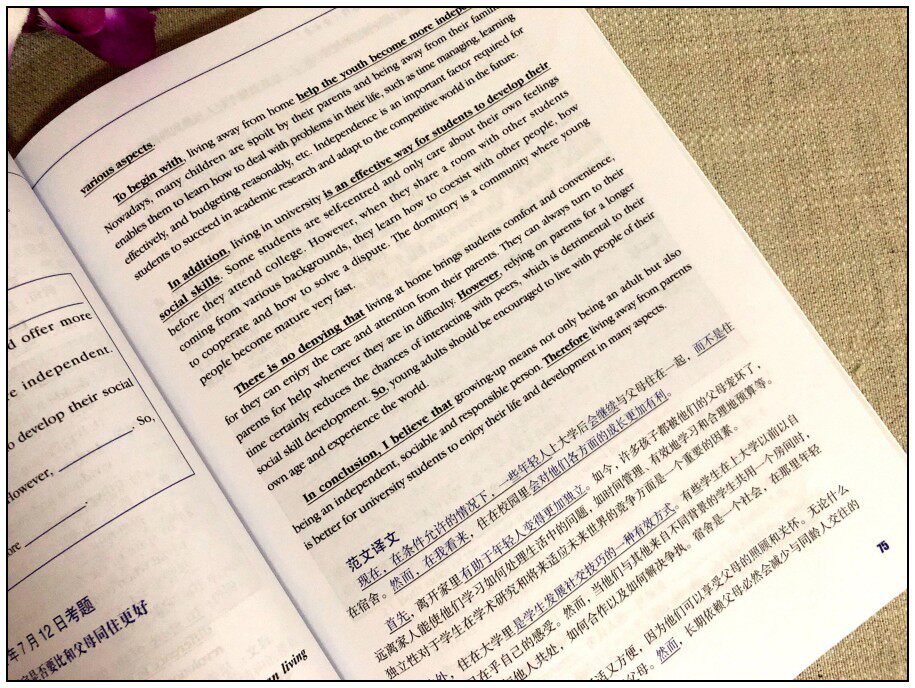 d offer more
e independent.
o develop their social
. So,
However,
ore
年7月12日考题
是否要比和父母同住更好
an living
various aspects.
To begin with, living away from home help the youth become more indepen
Nowadays, many children are spoilt by their parents and being away from their famili
enables them to learn how to deal with problems in their life, such as time managing, learning
effectively, and budgeting reasonably, etc. Independence is an important factor required for
students to succeed in academic research and adapt to the competitive world in the future.
In addition, living in university is an effective way for students to develop their
social skills. Some students are self-centred and only care about their own feelings
before they attend college. However, when they share a room with other students
coming from various backgrounds, they learn how to coexist with other people, how
to cooperate and how to solve a dispute. The dormitory is a community where young
people become mature very fast.
There is no denying that living at home brings students comfort and convenience,
for they can enjoy the care and attention from their parents. They can always turn to their
parents for help whenever they are in difficulty. However, relying on parents for a longer
time certainly reduces the chances of interacting with peers, which is detrimental to their
social skill development. So, young adults should be encouraged to live with people of their
own age and experience the world.
In conclusion, I believe that growing-up means not only being an adult but also
being an independent, sociable and responsible person. Therefore living away from parents
is better for university students to enjoy their life and development in many aspects.
范文译文
现在，在条件允许的情况下，一些年轻人上大学后会继续与父母住在一起，而不是住
在宿舍。然而，在我看来，住在校园里会对他们各方面的成长更加有利。
首先，离开家里有助于年轻人变得更加独立。如今，许多孩子都被他们的父母宠坏了，
远离家人能使他们学习如何处理生活中的问题，如时间管理、有效地学习和合理地预算等。
独立性对于学生在学术研究和将来适应未来世界的竞争方面是一个重要的因素。
外，住在大学里是学生发展社交技巧的一种有效方式。有些学生在上大学以前以自
只在乎自己的感受。然而，当他们与其他来自不同背景的学生共用一个房间时，
他人共处，如何合作以及如何解决争执。宿舍是一个社会，在那里年轻
适又方便，因为他们可以享受父母的照顾和关怀。无论什么
父母。然而，长期依赖父母必然会减少与同龄人交往的
75